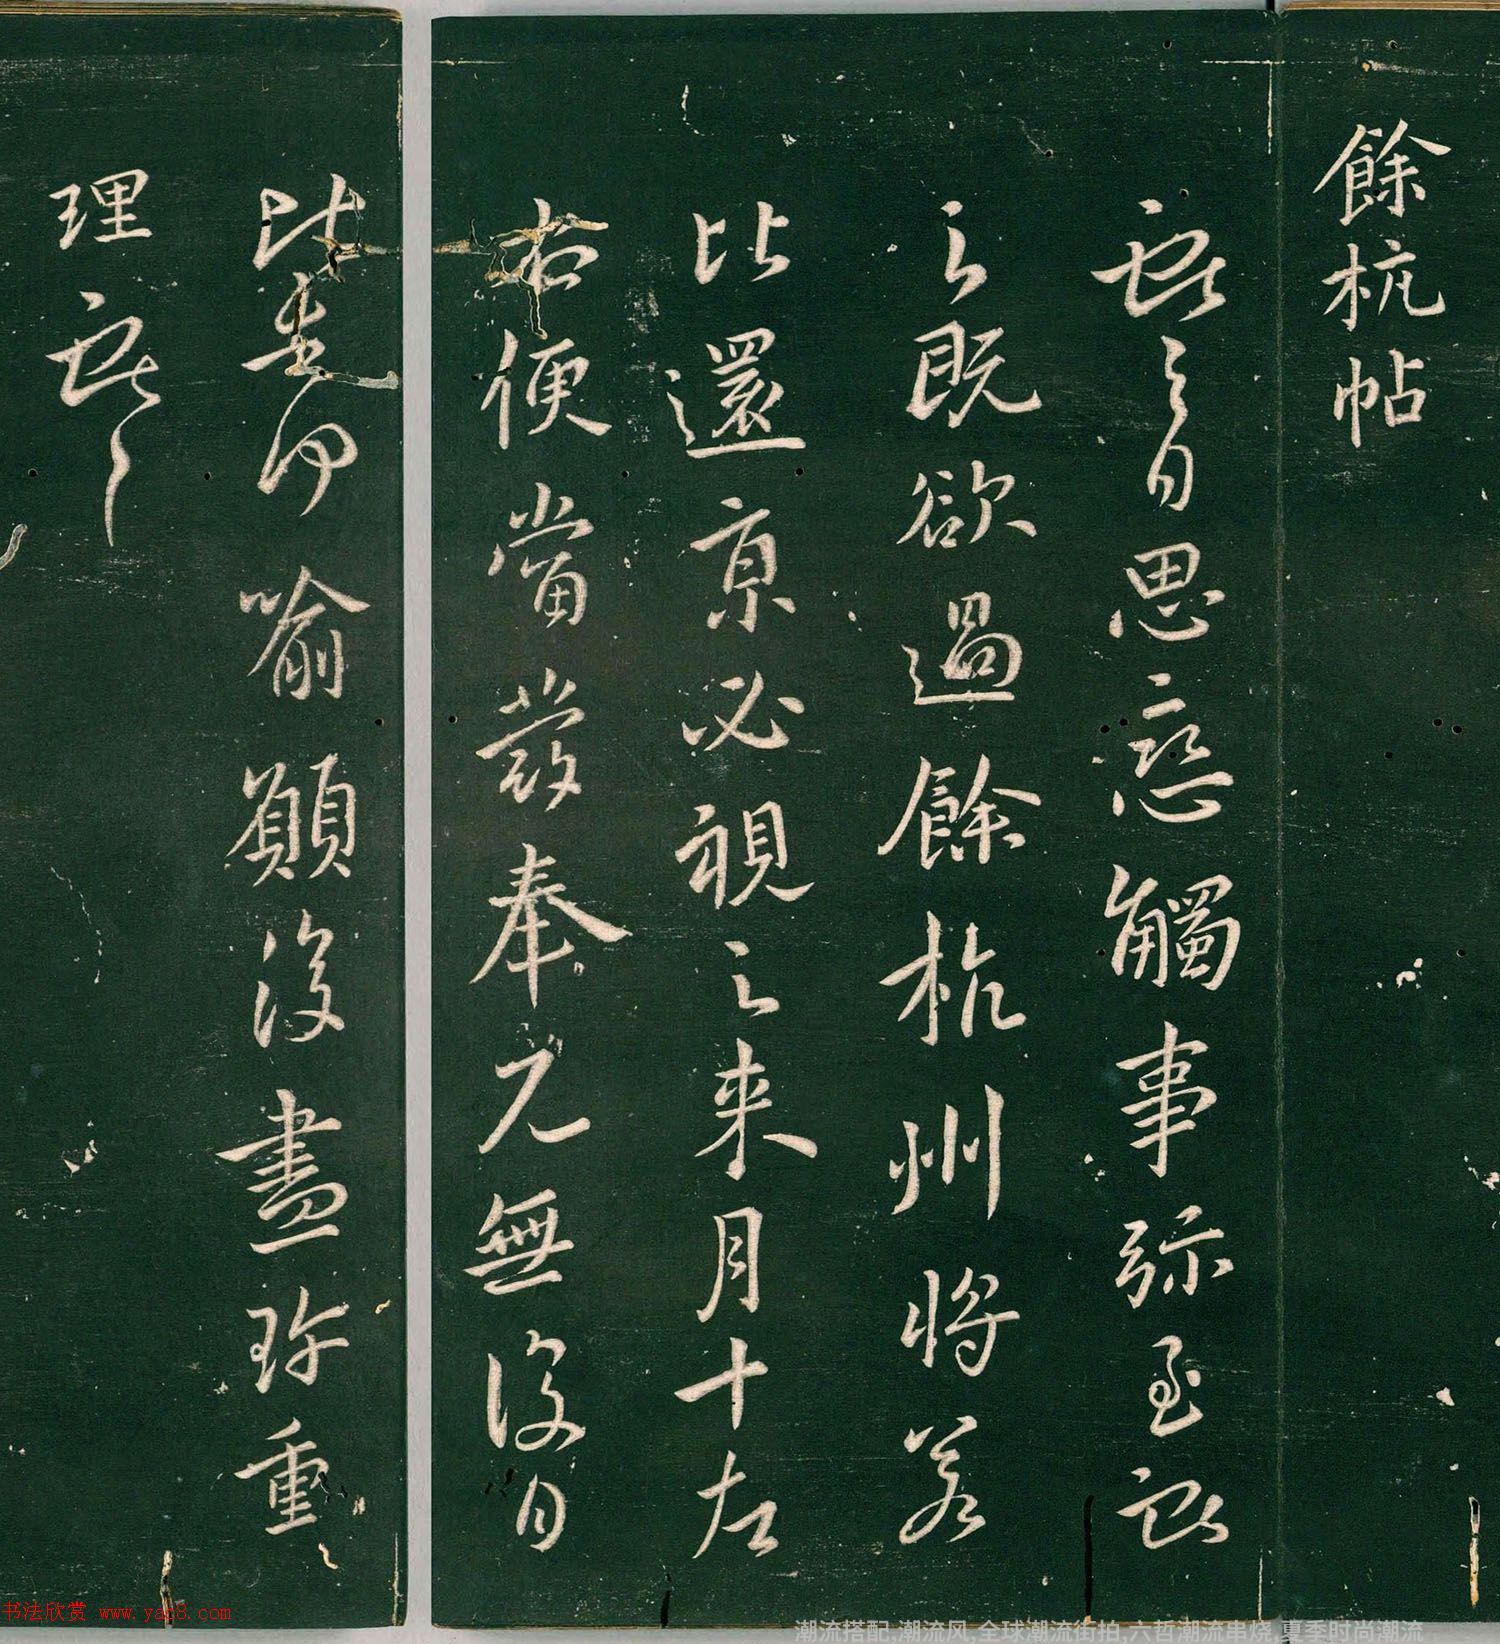 餘杭帖
日思戀觸事弥至
之既欲過餘杭州將若
比還京必視之来月十左
右便當發奉見無復日
比喻願復盡珍重
理
书法欣赏 www.yac8.com
潮流搭配,潮流风,全球潮流街拍,六哲潮流串烧,夏季时尚潮流